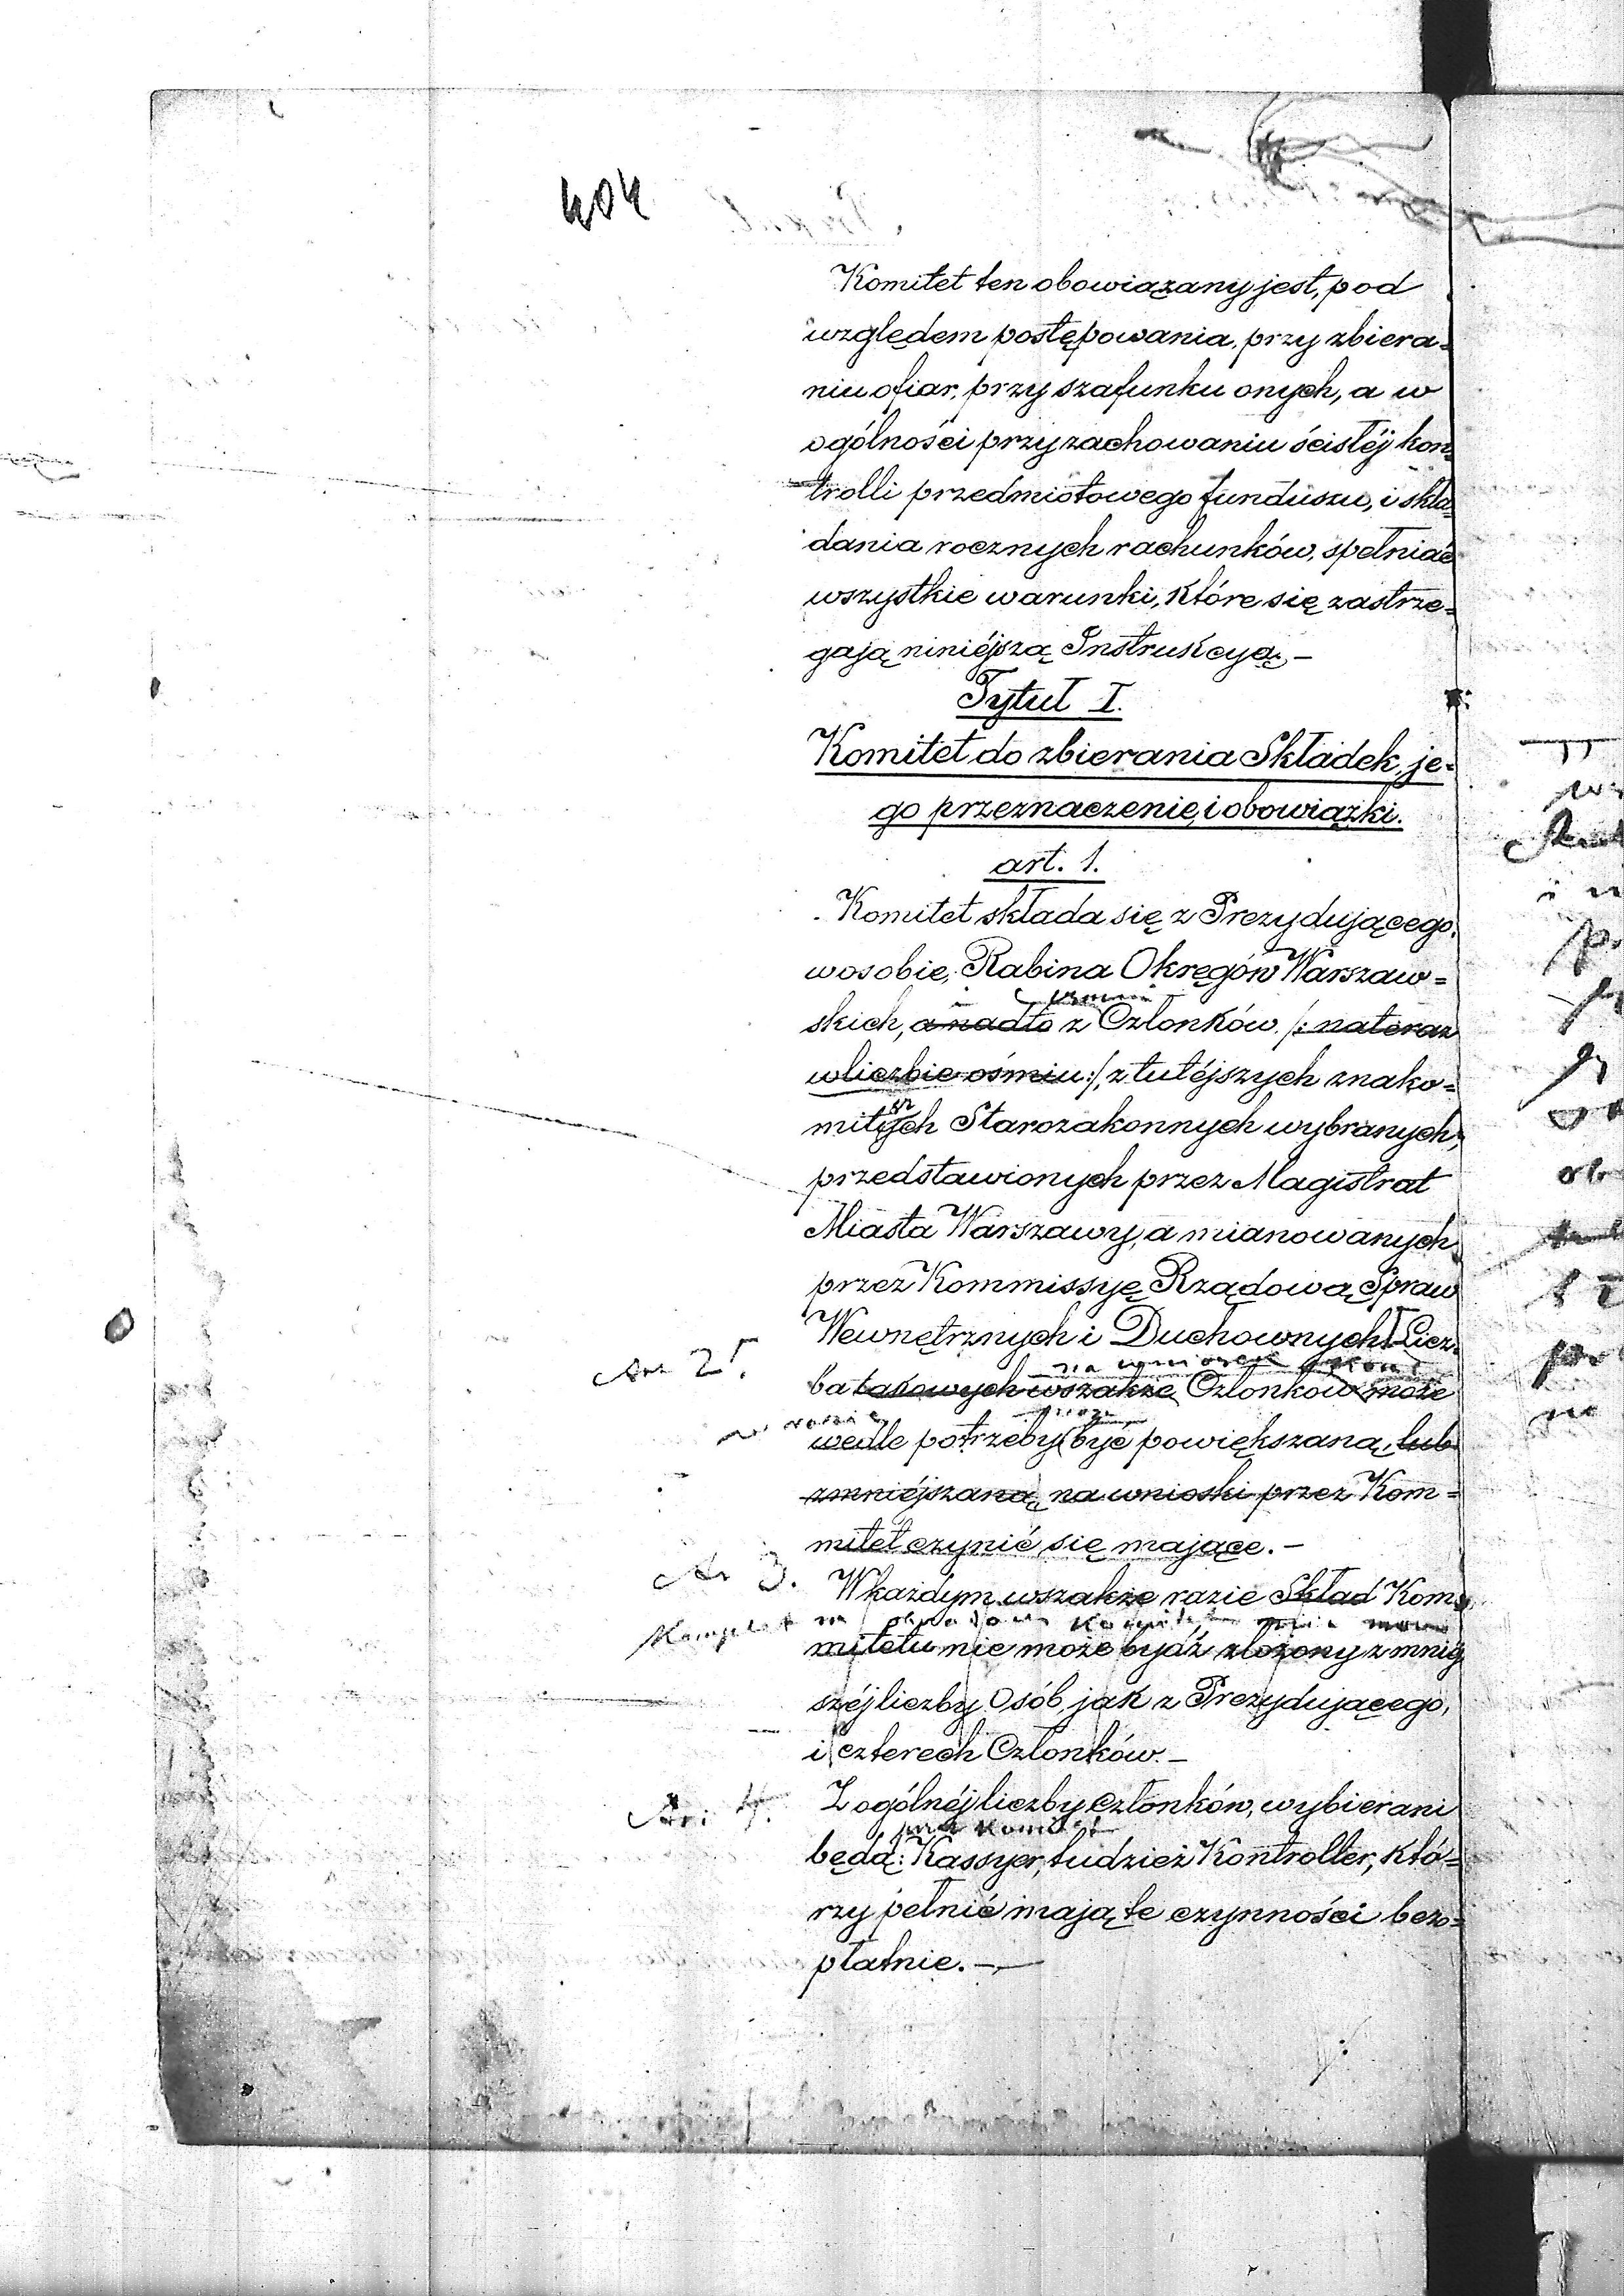 404
Komitet ten obowiązany jest, pod
względem postępowania, przy zbiera=
niu ofiar, przy szafunku onych, a w
ogólności przy zachowaniu ścisłéj kon=
trolli przedmiotowego funduszu, i skła=
dania rocznych rachunków, spełniać
wszystkie warunki, które się zastrze=
gają niniéjszą Instrukcyą,—
Tytuł I.
Komitet do zbierania Składek, je=
go przeznaczenie, i obowiązki.
art. 1.
Komitet składa się z Prezydującego,
w osobie, Rabina Okręgów Warszaw=
skich, a nadto z Członków /: na teraz
w liczbie ośmiu :/, z tutéjszych znako=
mitych Starozakonnych wybranych,
przedstawionych przez Magistrat
Miasta Warszawy, a mianowanych
przez Kommissyę Rządową Spraw
Wewnętrznych i Duchownych. Licz=
Art 2.
na wniosek
ba takowych wszakże Członków może
w razie
wedle potrzeby być powiększaną, lub
zmniéjszaną na wnioski przez Kom=
mitet czynić się mające.—
Ar 3.
W każdym wszakże razie Skład Kom=
Komplet
mitetu nie może bydź złożony z mniéj
széj liczby Osób, jak z Prezydującego,
i czterech Członków.—
Art 4.
Z ogólnéj liczby Członków, wybierani
przez Komitet
będą: Kassyer, tudzież Kontroller, któ=
rzy pełnić mają te czynności bez=
płatnie.—